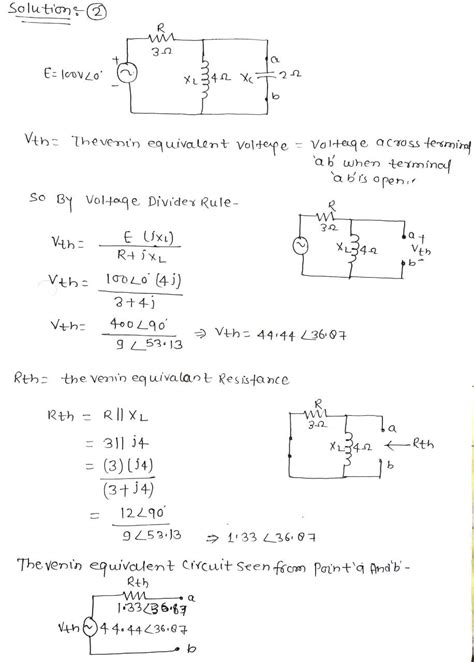 Solution:- ②
R
3Ω
a
E=100V∠0°
+
XL
4Ω
XC
2Ω
b
Vth = Thevenin equivalent voltage = Voltage across terminal
'ab' when terminal
'ab' is open.
So By Voltage Divider Rule-
Vth = E (jXL)
R+jXL
Vth = 100∠0° (4j)
3+4j
Vth = 400∠90°
9∠53.13
⇒ Vth = 44.44∠36.87
R
3Ω
XL
4Ω
a +
Vth
b -
Rth = thevenin equivalant Resistance
Rth = R || XL
= 3 || j4
= (3)(j4)
(3+j4)
= 12∠90°
9∠53.13
⇒ 1.33∠36.87
R
3Ω
XL
4Ω
a
← Rth
b
Thevenin equivalent Circuit seen from Point 'a' And 'b' -
Rth
1.33∠36.87
a
Vth
44.44∠36.87
b